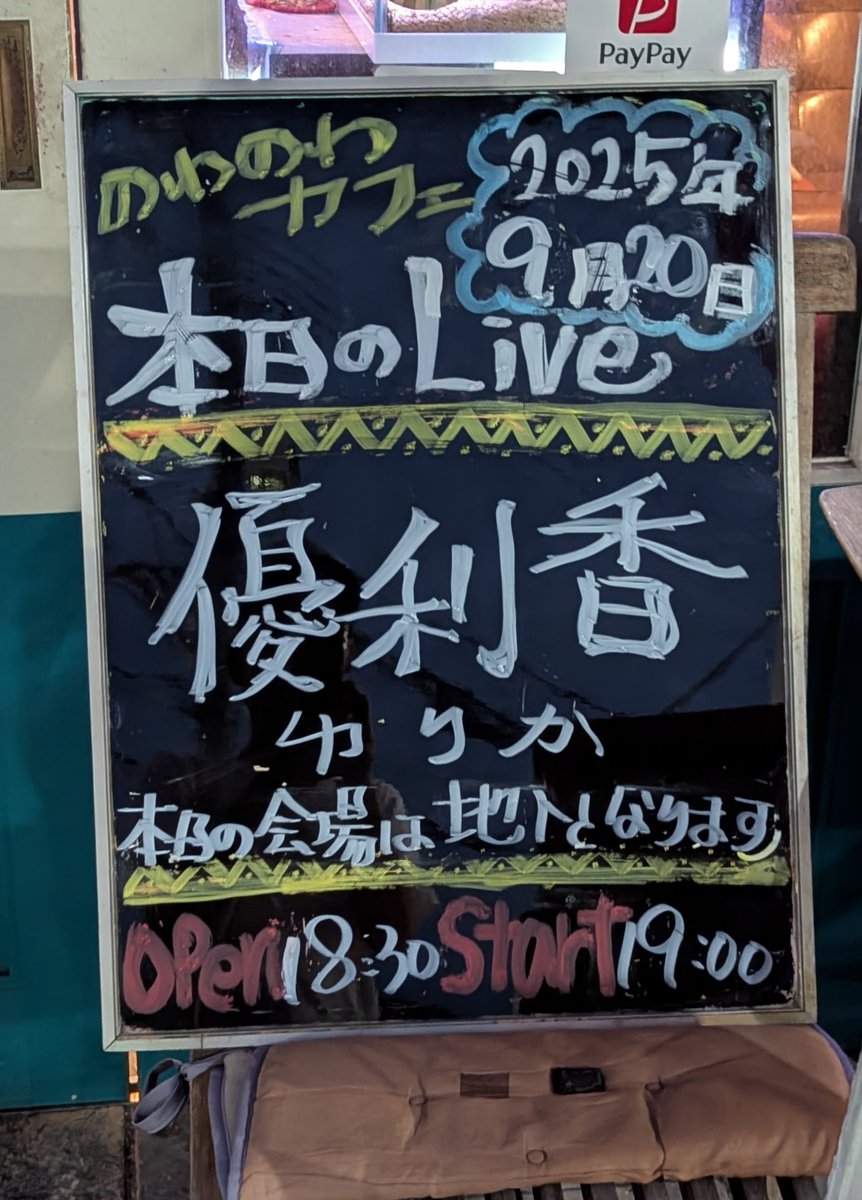 PayPay
のわのわ
カフェ
2025年
9月20日
本日のLive
優利香
ゆりか
本日の会場は地下となります
Open 18:30 Start 19:00